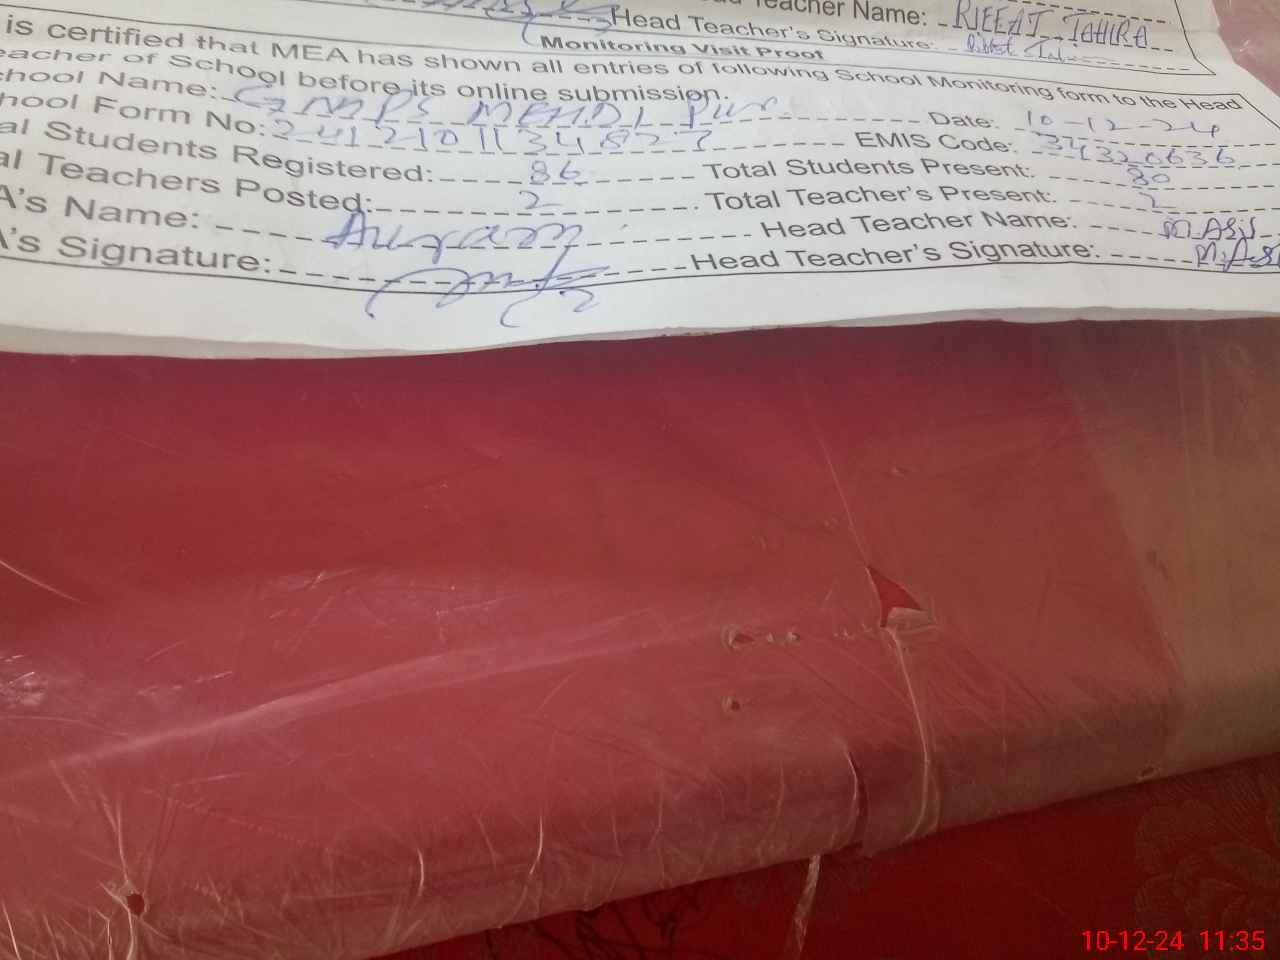 Teacher Name: RIFFAT TAHIRA
Head Teacher's Signature:
Monitoring Visit Proof
is certified that MEA has shown all entries of following School Monitoring form to the Head
eacher of School before its online submission.
chool Name: GMMPS MEHDI Pur Date: 10-12-24
hool Form No: EMIS Code: 34320636
al Students Registered: 86 Total Students Present: 80
al Teachers Posted: 2 Total Teacher's Present: 2
A's Name: Head Teacher Name: M.Asif
A's Signature: Head Teacher's Signature: M.Asi
10-12-24 11:35